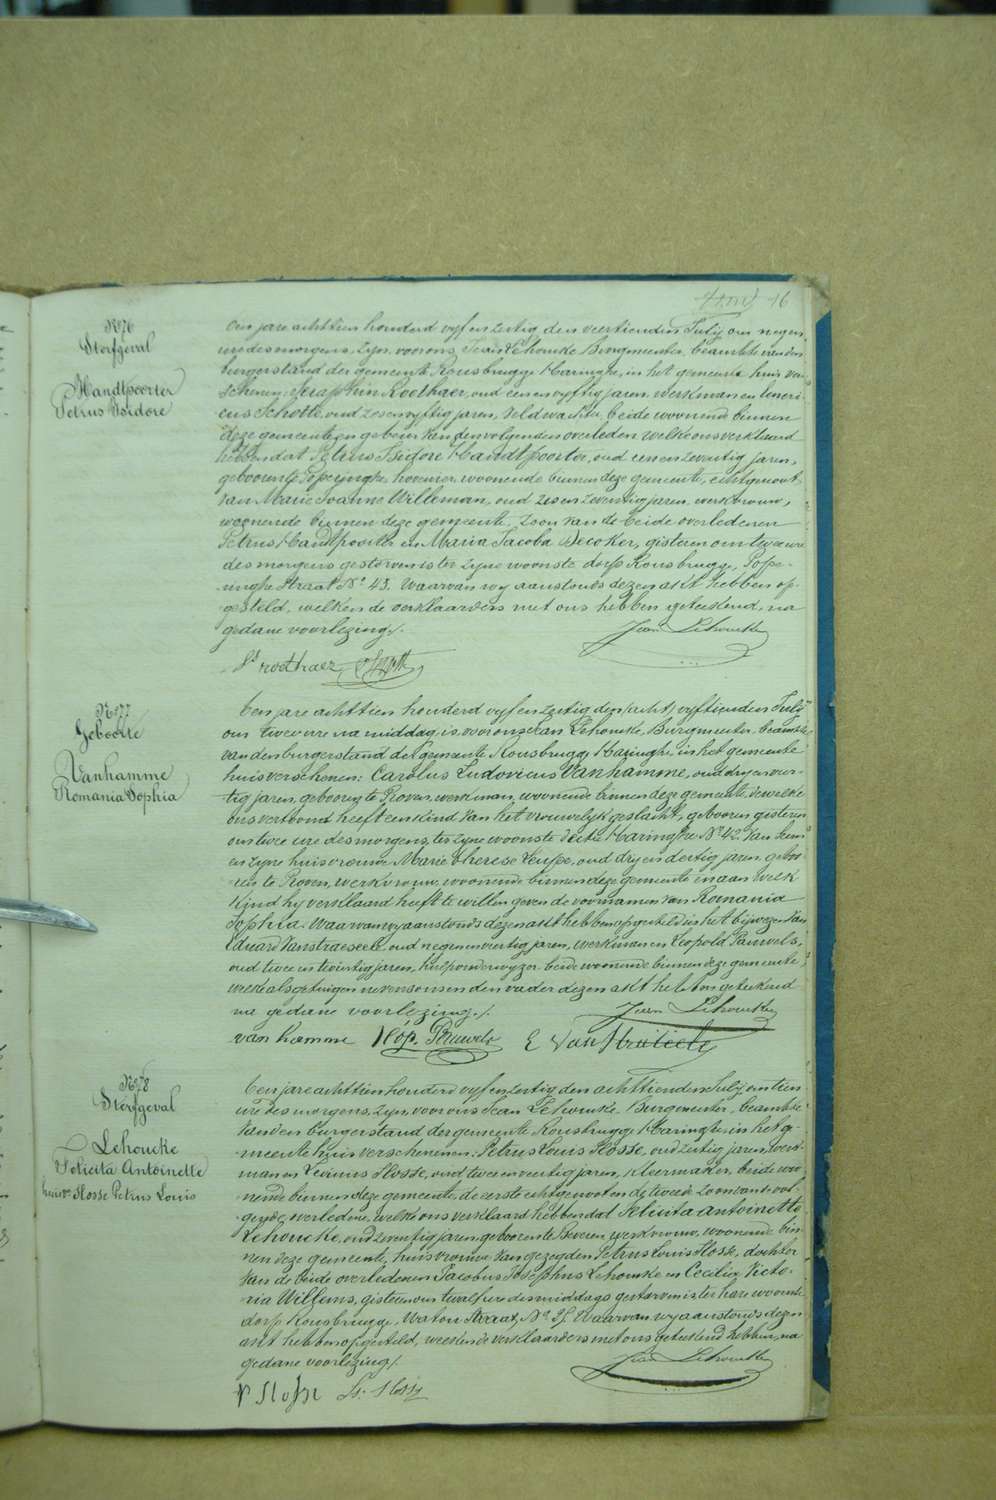 16
N° 76
Sterfgeval
Handtpoorter
Petrus Isidore
Een jare achttien honderd vyf en zestig den veertienden July om negen
ure des morgens, zyn voor ons Jean Lehoucke Burgmeester, beambte van den
burgerstand der gemeente Rousbrugge Haringhe, in het gemeente huis ver-
schenen: Seraphin Roethaer, oud een en vyftig jaren, werkman en
Schotte, oud zes en vyftig jaren, veldwachter, beide woonende binnen
deze gemeente en gebueren van den volgenden overleden welke ons verklaard
hebben dat Petrus Isidore Handtpoorter, oud een en zeventig jaren,
geboren te Poperinghe, hovenier, woonende binnen deze gemeente, echtgenoot
van Marie Joanne Willeman, oud zes en zeventig jaren, werkvrouw,
woonende binnen deze gemeente, zoon van de beide overledenen
Petrus Handtpoorter en Maria Jacoba Decoker, gisteren om twee ure
des morgens gestorven is ter zyne woonste dorp Rousbrugge, Pope-
ringhe Straat N° 43. Waarvan wy aanstonds dezen akt hebben op-
gesteld, welken de verklaarders met ons hebben geteekend, na
gedane voorlezing./.
Jean Lehoucke
Sn roethaer
N° 77
Geboorte
Vanhamme
Romania Sophia
Een jare achttien honderd vyf en zestig den (acht) vyftienden July
om twee ure na middag, is voor ons Jean Lehoucke, Burgmeester, beambte
van den burgerstand der gemeente Rousbrugge Haringhe, in het gemeente
huis verschenen: Carolus Ludovicus Vanhamme, oud dry en veer-
tig jaren, geboren te Proven, werkman, woonende binnen deze gemeente, dewelke
ons vertoond heeft een kind van het vrouwelyk geslacht, geboren gisteren
om twee ure des morgens, ter zyne woonste Haringhe N° 42. van hem
en zyne huisvrouwe Marie Therese Leupe, oud dry en dertig jaren, geboo-
ren te Proven, werkvrouw, woonende binnen deze gemeente en aan welk
kind hy verklaard heeft te willen geven de voornamen van Romania
Sophia. Waarvan wy aanstonds dezen akt hebben opgesteld in het bywezen van
Eduard Vanstraeseele oud negen en veertig jaren, werkman en Leopold Pauwels,
oud twee en twintig jaren, hulponderwyzer beide woonende binnen deze gemeente,
welke als getuigen nevens ons en den vader dezen akt hebben geteekend
na gedane voorlezing./.
Jean Lehoucke
van hamme Leop. Pauwels E Vanstraeseele
N° 78
Sterfgeval
Lehoucke
Felicita Antoinette
huisve Slosse Petrus Louis
Een jare achttien honderd vyf en zestig den achttienden July om tien
ure des morgens, zyn voor ons Jean Lehoucke, Burgmeester, beambte
van den burgerstand der gemeente Rousbrugge Haringhe, in het ge-
meente huis verschenen: Petrus Louis Slosse, oud zestig jaren, werk-
man en Livinus Slosse, oud twee en veertig jaren, kleermaker, beide woo-
nende binnen deze gemeente, de eerste echtgenoot en de tweede zoon van de vol-
gende overledene, welke ons verklaard hebben dat Felicita Antoinette
Lehoucke, oud zeventig jaren, geboren te Beveren, werkvrouw, woonende bin-
nen deze gemeente, huisvrouwe van gezegden Petrus Louis Slosse, dochter
van de beide overledenen Jacobus Josephus Lehoucke en Cecilia Victo-
ria Willems, gisteren om twaalf ure des middags gestorven is ter hare woonste
dorp Rousbrugge, Watou Straat, N° 35. Waarvan wy aanstonds dezen
akt hebben opgesteld, welken de verklaarders met ons geteekend hebben, na
gedane voorlezing./.
Jean Lehoucke
P Slosse Lv. Slosse